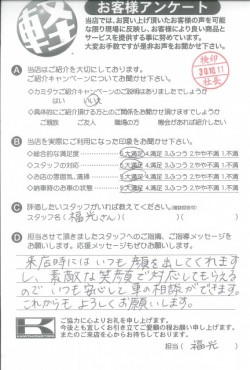 軽
お客様アンケート
当店では、お買い上げ頂いたお客様の声を可能
な限り現場に反映し、お客様により良い商品と
サービスを提供する事に努めています。
大変お手数ですが是非お声をお聞かせ下さい。
検印
社長
A 当店はご紹介を大切にしております。
ご紹介キャンペーンについてお聞かせ下さい。
◇カミタケご紹介キャンペーンのご説明はありましたでしょうか
はい いいえ
◇具体的にご紹介頂ける方とのご関係をお聞かせ頂けますでしょうか
ご親族 ご友人 職場の方 機会があれば紹介したい
B 当店を実際にご利用になった印象をお聞かせ下さい。
◇総合的な満足度 5.大満足 4.満足 3.ふつう 2.やや不満 1.不満
◇スタッフの対応 5.大満足 4.満足 3.ふつう 2.やや不満 1.不満
◇お店の雰囲気、清掃 5.大満足 4.満足 3.ふつう 2.やや不満 1.不満
◇納車時のお車の状態 5.大満足 4.満足 3.ふつう 2.やや不満 1.不満
C 評価したいスタッフがいれば教えてください。
スタッフ名 ( 福光さん ) ( ) ( )
D 担当させて頂きましたスタッフへのご指導、ご指導メッセージを
お願いします。応援メッセージもぜひお願いします。
来店時にはいつも顔を出してくれますし
、素敵な笑顔で対応してもらえる
のでいつも安心して車の相談ができます。
これからもよろしくお願いします。
ご協力に心よりお礼を申し上げます。
今後とも宜しくお引き立てご愛顧の程お願い申し上げます。
またのご来店を心からお待ちしております。
担当 ( 福光 )